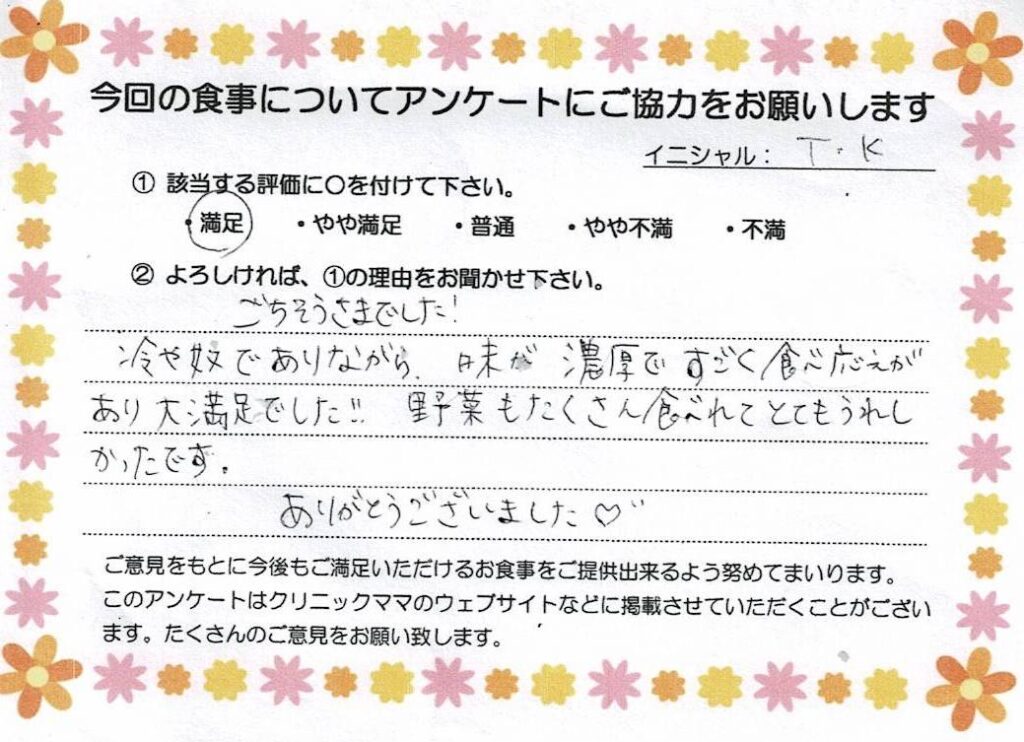 今回の食事についてアンケートにご協力をお願いします
イニシャル： T・K
① 該当する評価に〇を付けて下さい。
・満足 ・やや満足 ・普通 ・やや不満 ・不満
② よろしければ、①の理由をお聞かせ下さい。
ごちそうさまでした!
冷や奴でありながら、味が濃厚ですごく食べ応えが
あり大満足でした!! 野菜もたくさん食べれてとてもうれし
かったです。
ありがとうございました♡
ご意見をもとに今後もご満足いただけるお食事をご提供出来るよう努めてまいります。
このアンケートはクリニックママのウェブサイトなどに掲載させていただくことがござい
ます。たくさんのご意見をお願い致します。